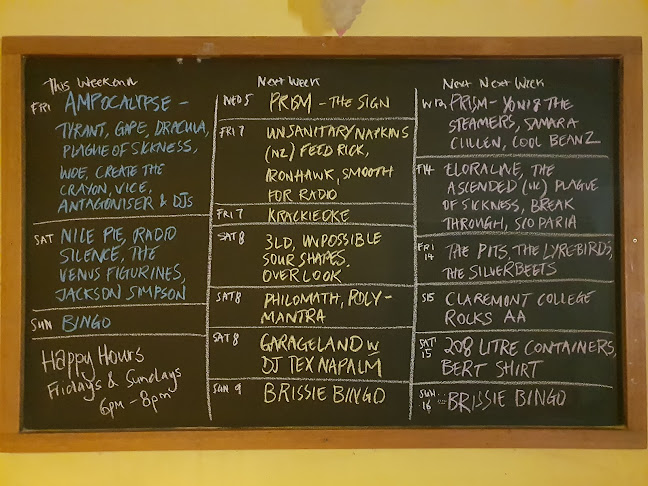 This Weekend
FRI AMPOCALYPSE –
TYRANT, GAPE, DRACULA,
PLAGUE OF SICKNESS,
WOE, CREATE THE
CRAYON, VICE,
ANTAGONISER & DJs
SAT NILE PIE, RADIO
SILENCE, THE
VENUS FIGURINES,
JACKSON SIMPSON
SUN BINGO
Happy Hours
Fridays & Sundays
6pm – 8pm
Next Week
WED 5 PRISM – THE SIGN
FRI 7 UNSANITARY NAPKINS
(NZ) FEED RICK,
IRONHAWK, SMOOTH
FOR RADIO
FRI 7 KRACKIEOKE
SAT 8 3LD, IMPOSSIBLE
SOUR SHAPES,
OVERLOOK
SAT 8 PHILOMATH, POLY-
MANTRA
SAT 8 GARAGELAND W
DJ TEX NAPALM
SUN 9 BRISSIE BINGO
Next Next Week
W12 PRISM – YONI & THE
STEAMERS, SAMARA
CULLEN, COOL BEANZ
F14 ELORALINE, THE
ASCENDED (VIC) PLAGUE
OF SICKNESS, BREAK
THROUGH, SCOPARIA
FRI 14 THE PITS, THE LYREBIRDS,
THE SILVERBEETS
S15 CLAREMONT COLLEGE
ROCKS AA
SAT 15 208 LITRE CONTAINERS,
BERT SHIRT
SUN 16 BRISSIE BINGO